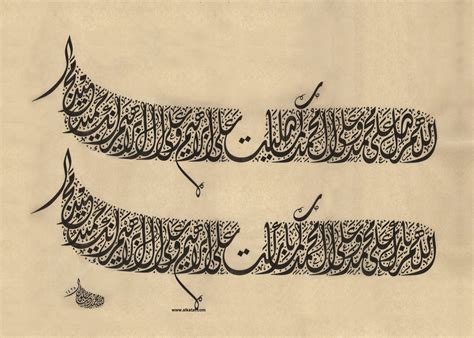 اللهم صل على محمد وعلى آل محمد كما صليت على إبراهيم وعلى آل إبراهيم إنك حميد مجيد
اللهم بارك على محمد وعلى آل محمد كما باركت على إبراهيم وعلى آل إبراهيم إنك حميد مجيد